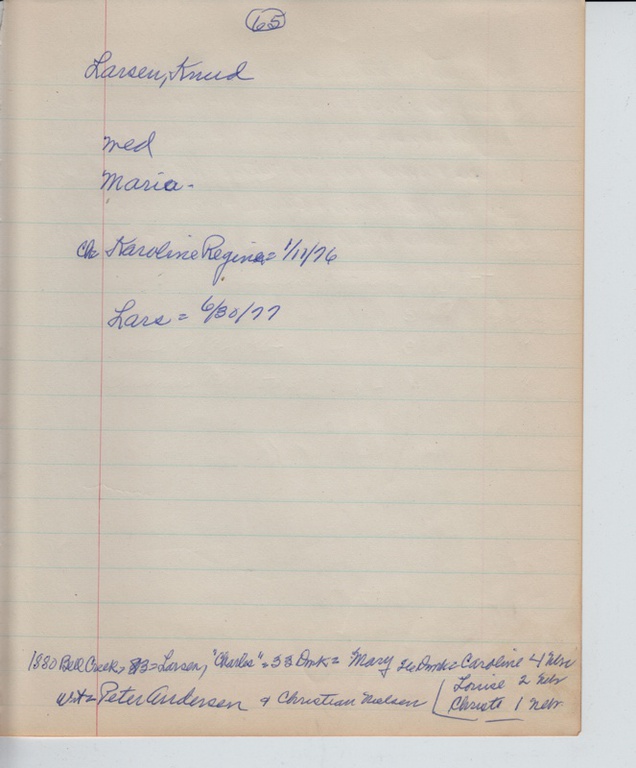 65
Larsen, Knud
med
Maria.
ch Karoline Regine = 1/11/76
Lars = 6/30/77
1880 Bell Creek, = Larsen, "Charles" = 33 Dmk = Mary 26 Dmk = Caroline 4 Nebr
Louise 2 Nebr
wt = Peter Andersen & Christian Nielsen Christi 1 Nebr